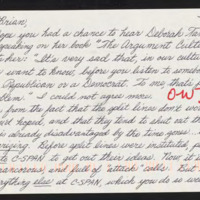 Brian,
you had a chance to hear Deborah Tan
speaking on her book "The Argument Cultu
her: "It's very sad that, in our cultu
want to know, before you listen to someb
Republican or a Democrat. To me, that's
." I could not agree more. O-W
from the fact that the split lines don't
hoped, and that they tend to shut out th
is already disadvantaged by the time zones
. Before split lines were instituted,
C-SPAN to get out their ideas. Now, it i
rancorous, and full of "attack" calls. But
everything else at C-SPAN, which you do so we